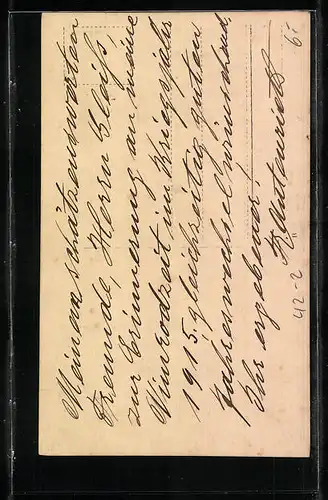 Meinem schätzenswerten
Freunde, Herrn Gleiß,
zur Erinnerung an meine
Nimrodzeit im Kriegsjahr
1915. gleichzeitig guten
Jahreswechsel wünschend,
Ihr ergebener,
Autenrieth
42-2
6.-